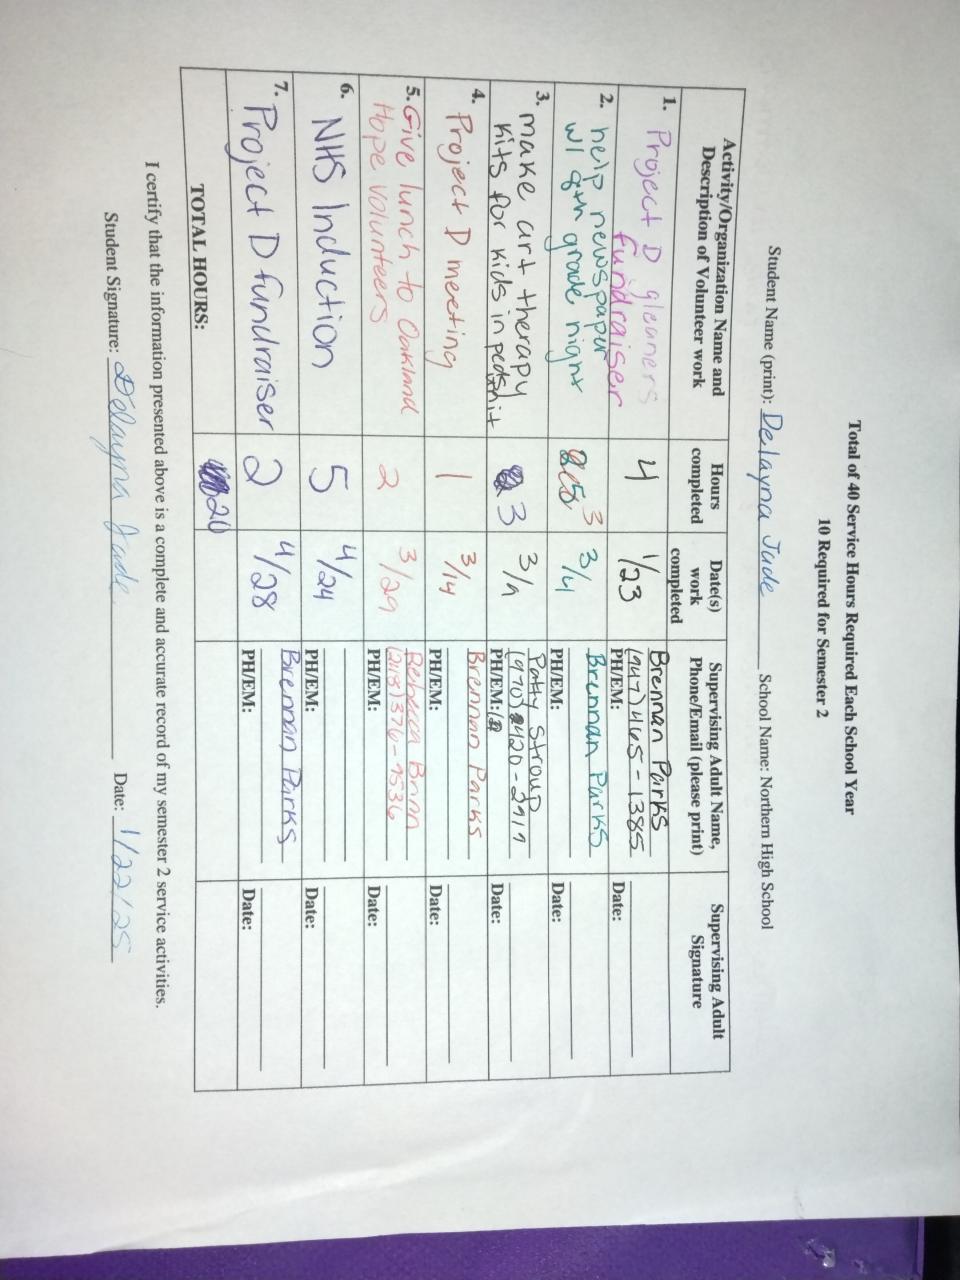 Total of 40 Service Hours Required Each School Year
10 Required for Semester 2
Student Name (print): Delayna Jude School Name: Northern High School
Activity/Organization Name and Description of Volunteer work
Hours completed
Date(s) work completed
Supervising Adult Name, Phone/Email (please print)
Supervising Adult Signature
1. Project D gleaners
fundraiser
4
1/23
Brennan Parks
(947)465-1385
PH/EM:
Date:
2. help newspaper
w/ 8th grade night
3
3/4
Brennan Parks
PH/EM:
Date:
3. make art therapy
kits for kids in
3
Patty Stroup
PH/EM:
Date:
4. Project D meeting
1
3/14
Brennan Parks
PH/EM:
Date:
5. Give lunch to Oakland
Hope volunteers
2
3/29
Rebecca
PH/EM:
Date:
6. NHS Induction
5
4/24
PH/EM:
Date:
7. Project D fundraiser
2
4/28
Brennan Parks
PH/EM:
Date:
TOTAL HOURS:
20
I certify that the information presented above is a complete and accurate record of my semester 2 service activities.
Student Signature: Delayna Jude Date: 1/22/25